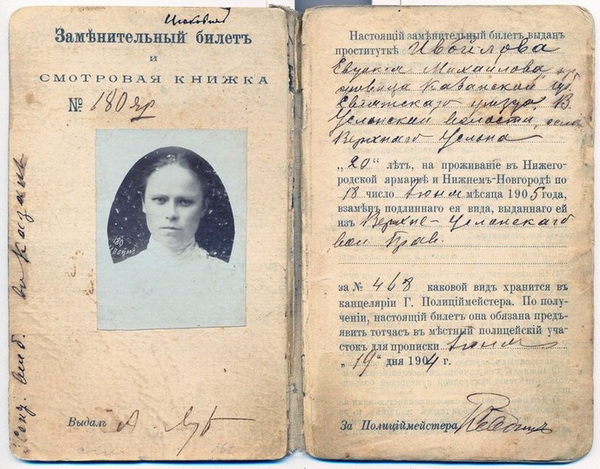 Замѣнительный билетъ
и
СМОТРОВАЯ КНИЖКА
№ 180 яр
Выдалъ
Настоящій замѣнительный билетъ выданъ
проституткѣ
Евдокія Михайлова
Казанской губ.
уѣзда, В.
Услонской волости, села
Верхнаго Услона
„20" лѣтъ, на проживаніе въ Нижего-
родской ярмаркѣ и Нижнемъ-Новгородѣ по
18 число Іюня мѣсяца 1905 года,
взамѣнъ подлиннаго ея вида, выданнаго ей
изъ Верхне-Услонскаго
вол. Прав.
за № 468 каковой видъ хранится въ
канцеляріи Г. Полиціймейстера. По полу-
ченіи, настоящій билетъ она обязана предъ-
явить тотчасъ въ мѣстный полицейскій уча-
стокъ для прописки Іюня
„19" дня 1904 г.
За Полиціймейстера